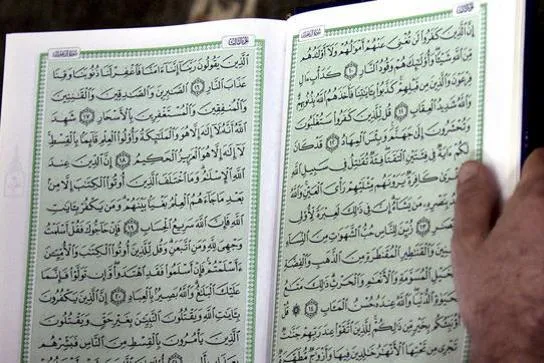 إِنَّ ٱلَّذِينَ كَفَرُوا۟ لَن تُغْنِىَ عَنْهُمْ أَمْوَٰلُهُمْ وَلَآ أَوْلَٰدُهُم
مِّنَ ٱللَّهِ شَيْـًٔا وَأُو۟لَٰٓئِكَ هُمْ وَقُودُ ٱلنَّارِ ١٠ كَدَأْبِ ءَالِ
فِرْعَوْنَ وَٱلَّذِينَ مِن قَبْلِهِمْ كَذَّبُوا۟ بِـَٔايَٰتِنَا فَأَخَذَهُمُ ٱللَّهُ بِذُنُوبِهِمْ
وَٱللَّهُ شَدِيدُ ٱلْعِقَابِ ١١ قُل لِّلَّذِينَ كَفَرُوا۟ سَتُغْلَبُونَ
وَتُحْشَرُونَ إِلَىٰ جَهَنَّمَ وَبِئْسَ ٱلْمِهَادُ ١٢ قَدْ كَانَ
لَكُمْ ءَايَةٌ فِى فِئَتَيْنِ ٱلْتَقَتَا فِئَةٌ تُقَٰتِلُ فِى سَبِيلِ ٱللَّهِ
وَأُخْرَىٰ كَافِرَةٌ يَرَوْنَهُم مِّثْلَيْهِمْ رَأْىَ ٱلْعَيْنِ وَٱللَّهُ
بِنَصْرِهِۦ مَن يَشَآءُ إِنَّ فِى ذَٰلِكَ لَعِبْرَةً لِّأُو۟لِى
١٣ زُيِّنَ لِلنَّاسِ حُبُّ ٱلشَّهَوَٰتِ مِنَ ٱلنِّسَآءِ
وَٱلْقَنَٰطِيرِ ٱلْمُقَنطَرَةِ مِنَ ٱلذَّهَبِ وَٱلْفِضَّةِ
وَٱلْخَيْلِ ٱلْمُسَوَّمَةِ وَٱلْأَنْعَٰمِ وَٱلْحَرْثِ ذَٰلِكَ مَتَٰعُ
ٱلْحَيَوٰةِ ٱلدُّنْيَا وَٱللَّهُ عِندَهُۥ حُسْنُ ٱلْمَـَٔابِ ١٤ قُلْ
أَؤُنَبِّئُكُم بِخَيْرٍ مِّن ذَٰلِكُمْ لِلَّذِينَ ٱتَّقَوْا۟ عِندَ رَبِّهِمْ جَنَّٰتٌ
تَجْرِى مِن تَحْتِهَا ٱلْأَنْهَٰرُ خَٰلِدِينَ فِيهَا وَأَزْوَٰجٌ مُّطَهَّرَةٌ
ٱلَّذِينَ يَقُولُونَ رَبَّنَآ إِنَّنَآ ءَامَنَّا فَٱغْفِرْ لَنَا ذُنُوبَنَا وَقِنَا
عَذَابَ ٱلنَّارِ ١٦ ٱلصَّٰبِرِينَ وَٱلصَّٰدِقِينَ وَٱلْقَٰنِتِينَ
وَٱلْمُنفِقِينَ وَٱلْمُسْتَغْفِرِينَ بِٱلْأَسْحَارِ ١٧ شَهِدَ
ٱللَّهُ أَنَّهُۥ لَآ إِلَٰهَ إِلَّا هُوَ وَٱلْمَلَٰٓئِكَةُ وَأُو۟لُوا۟ ٱلْعِلْمِ قَآئِمًۢا بِٱلْقِسْطِ
لَآ إِلَٰهَ إِلَّا هُوَ ٱلْعَزِيزُ ٱلْحَكِيمُ ١٨ إِنَّ ٱلدِّينَ عِندَ
ٱللَّهِ ٱلْإِسْلَٰمُ وَمَا ٱخْتَلَفَ ٱلَّذِينَ أُوتُوا۟ ٱلْكِتَٰبَ إِلَّا مِنۢ
بَعْدِ مَا جَآءَهُمُ ٱلْعِلْمُ بَغْيًۢا بَيْنَهُمْ وَمَن يَكْفُرْ بِـَٔايَٰتِ
ٱللَّهِ فَإِنَّ ٱللَّهَ سَرِيعُ ٱلْحِسَابِ ١٩ فَإِنْ حَآجُّوكَ فَقُلْ أَسْلَمْتُ
وَجْهِىَ لِلَّهِ وَمَنِ ٱتَّبَعَنِ وَقُل لِّلَّذِينَ أُوتُوا۟ ٱلْكِتَٰبَ وَٱلْأُمِّيِّـۧنَ
ءَأَسْلَمْتُمْ فَإِنْ أَسْلَمُوا۟ فَقَدِ ٱهْتَدَوا۟ وَّإِن تَوَلَّوْا۟ فَإِنَّمَا
عَلَيْكَ ٱلْبَلَٰغُ وَٱللَّهُ بَصِيرٌۢ بِٱلْعِبَادِ ٢٠ إِنَّ ٱلَّذِينَ يَكْفُرُونَ
بِـَٔايَٰتِ ٱللَّهِ وَيَقْتُلُونَ ٱلنَّبِيِّـۧنَ بِغَيْرِ حَقٍّ وَيَقْتُلُونَ
ٱلَّذِينَ يَأْمُرُونَ بِٱلْقِسْطِ مِنَ ٱلنَّاسِ فَبَشِّرْهُم